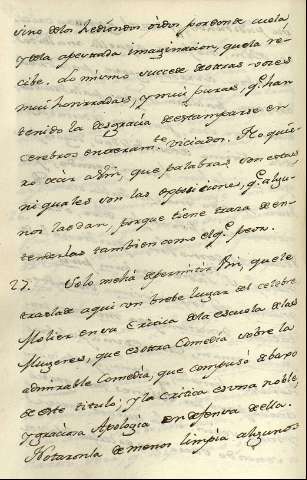 sino delos hediondos oidos por donde cuela,
y dela apestada imaginacion, que la re-
cibe. Lo mismo succede de otras voces
mui honrradas, y mui puras, q.e han
tenido la desgracia de estamparse en
cerebros enteram.te viciados. No quie-
ro decir à Bñi, que palabras son estas,
ni quales son las espositiones, q.e algu-
nos las dan, porque tiene traza de en-
tenderlas tambien como el q.e peor.
27. Solo me hà de permitir Bñi, que le
traslade aqui un brebe lugar del celebre
Molier en su Critica dela escuela delas
Mugeres, que es otra Comedia sobre la
admirable Comedia, que compusò de bapo
de este titulo; y la Critica es una noble,
y graciosa Apologia en defensa de ella.
Notaronla de menos limpia algunos